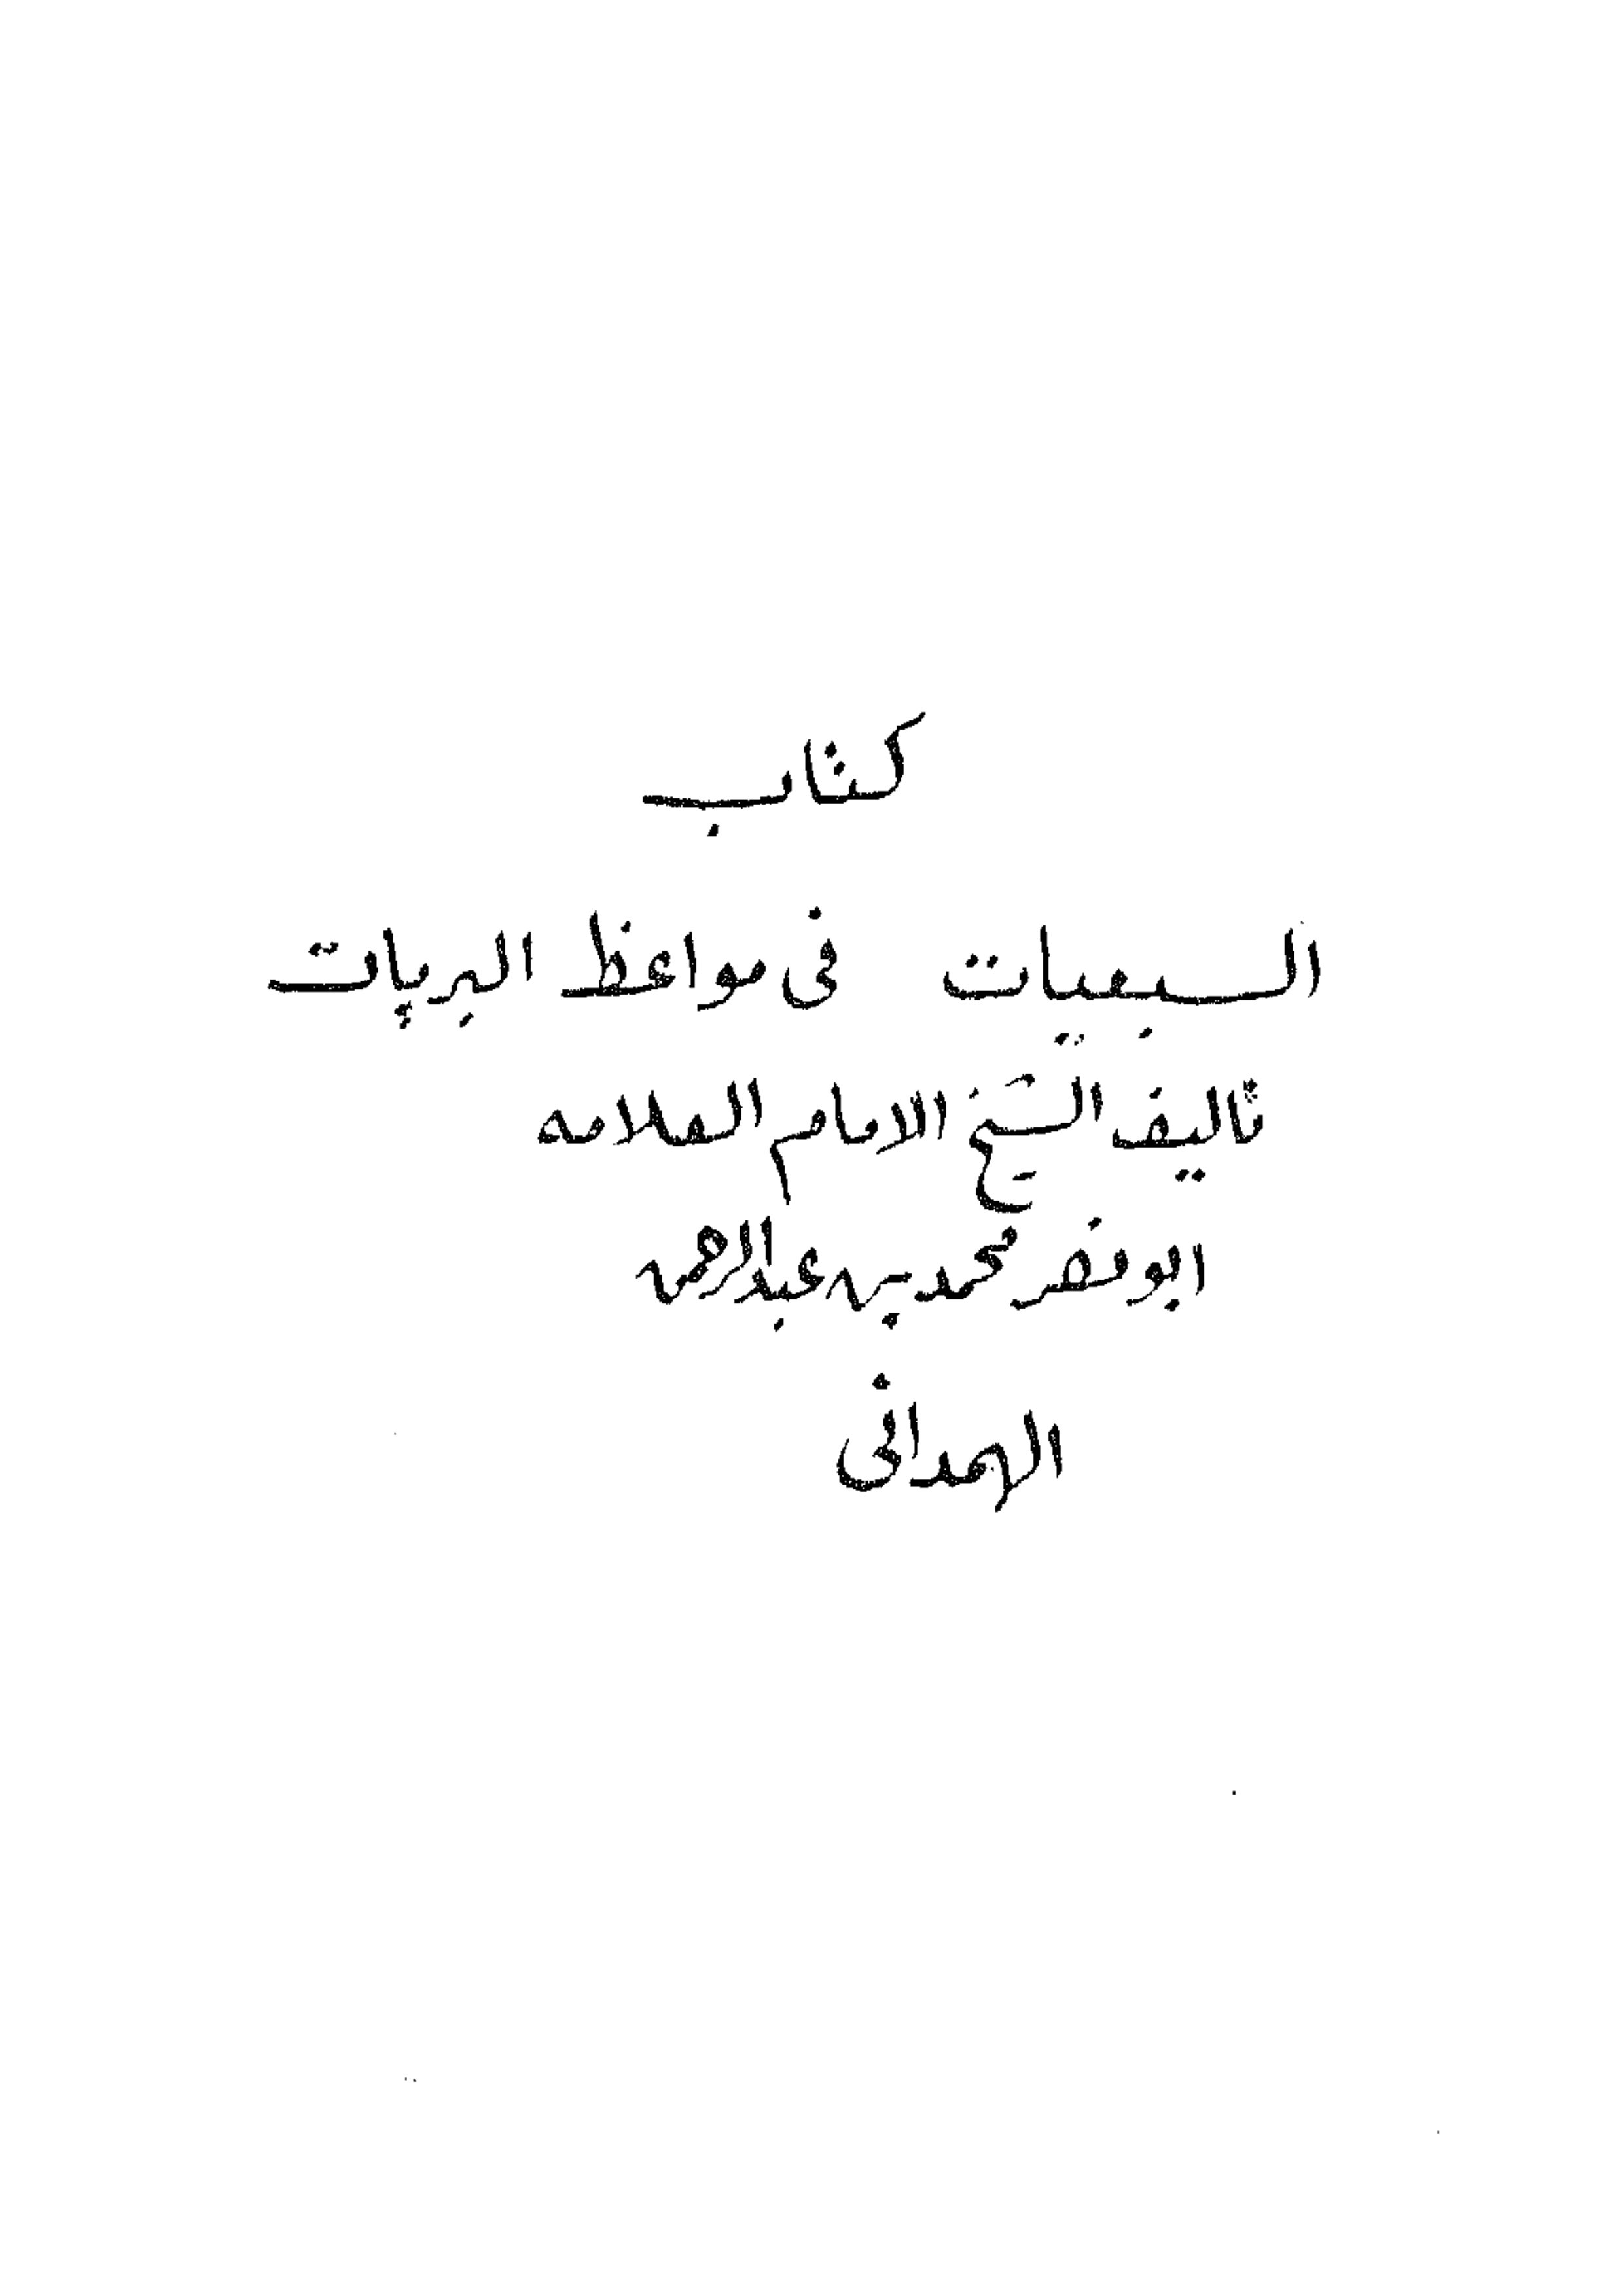 كتاب
السبعيات فى مواعظ البريات
تاليف الشيخ الامام العلامه
ابونصر محمد بن عبدالرحمن
الهمدانى